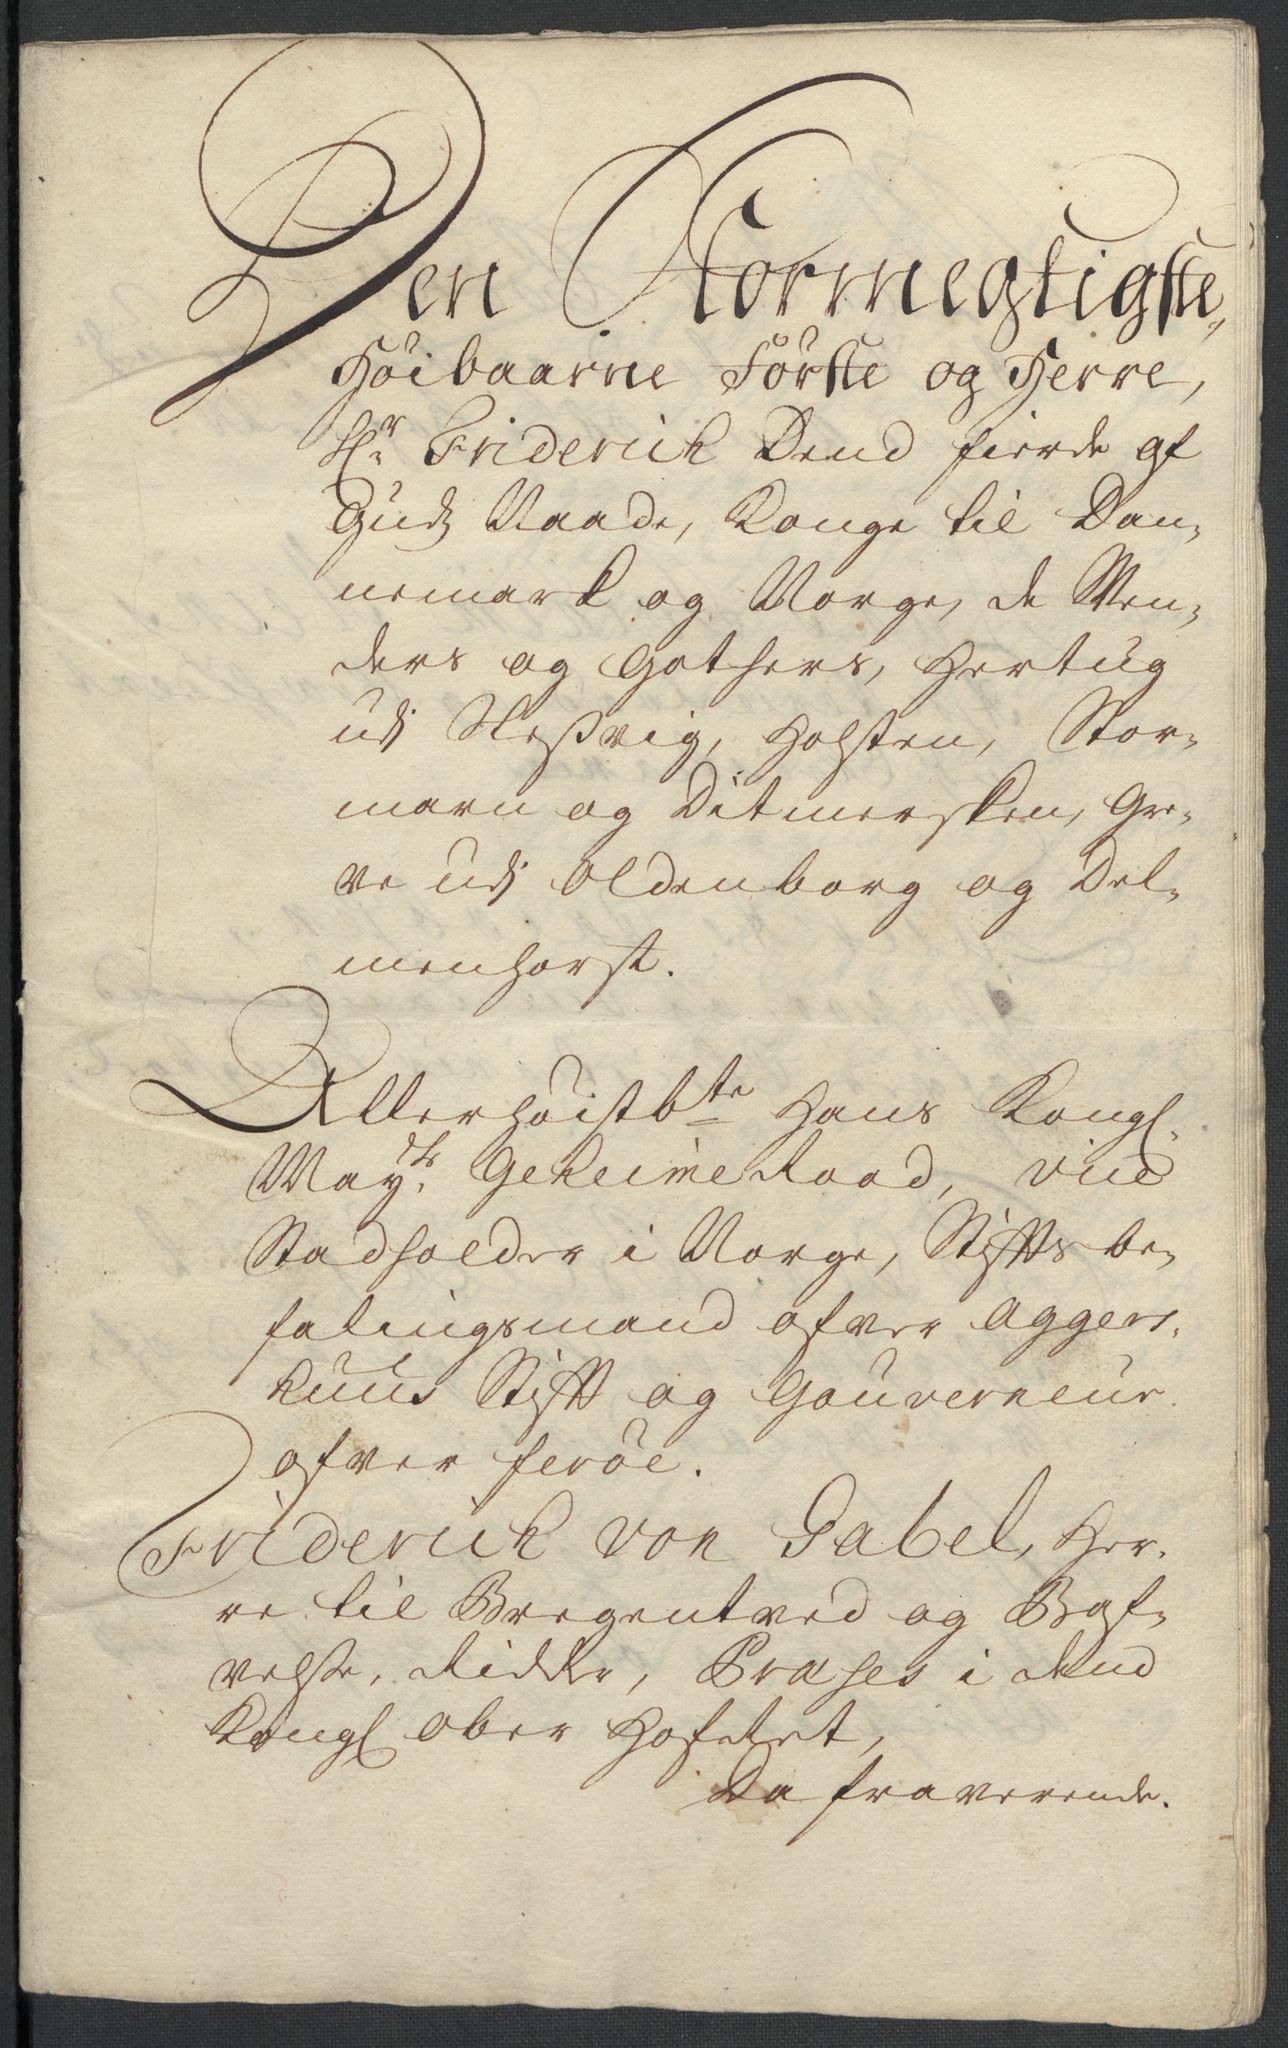 Den Stormegtigste,
Höibaarne Förste og Herre,
Hr. Friderich Dend fierde af
Guds Naade, Konge til Dan-
nemark og Norge, de Wen-
ders og Gothers, Hertug
udj Sleßvig, Holsten, Stor-
marn og Ditmersken, Gre-
ve udj Oldenborg og Del-
menhorst.
Allerhöistbte Hans Kongl.
Mayts. Geheime Raad, vice
Stadholder i Norge, Stiftsbe-
falingsmand ofver Aggers-
huus Stift og Gouverneur
ofver feröe.
Friderich von Gabel, Her-
re til Bregentved og Gis-
velse, Ridder, Præses i dend
Kongl Ober Hofret,
Da fraværende.